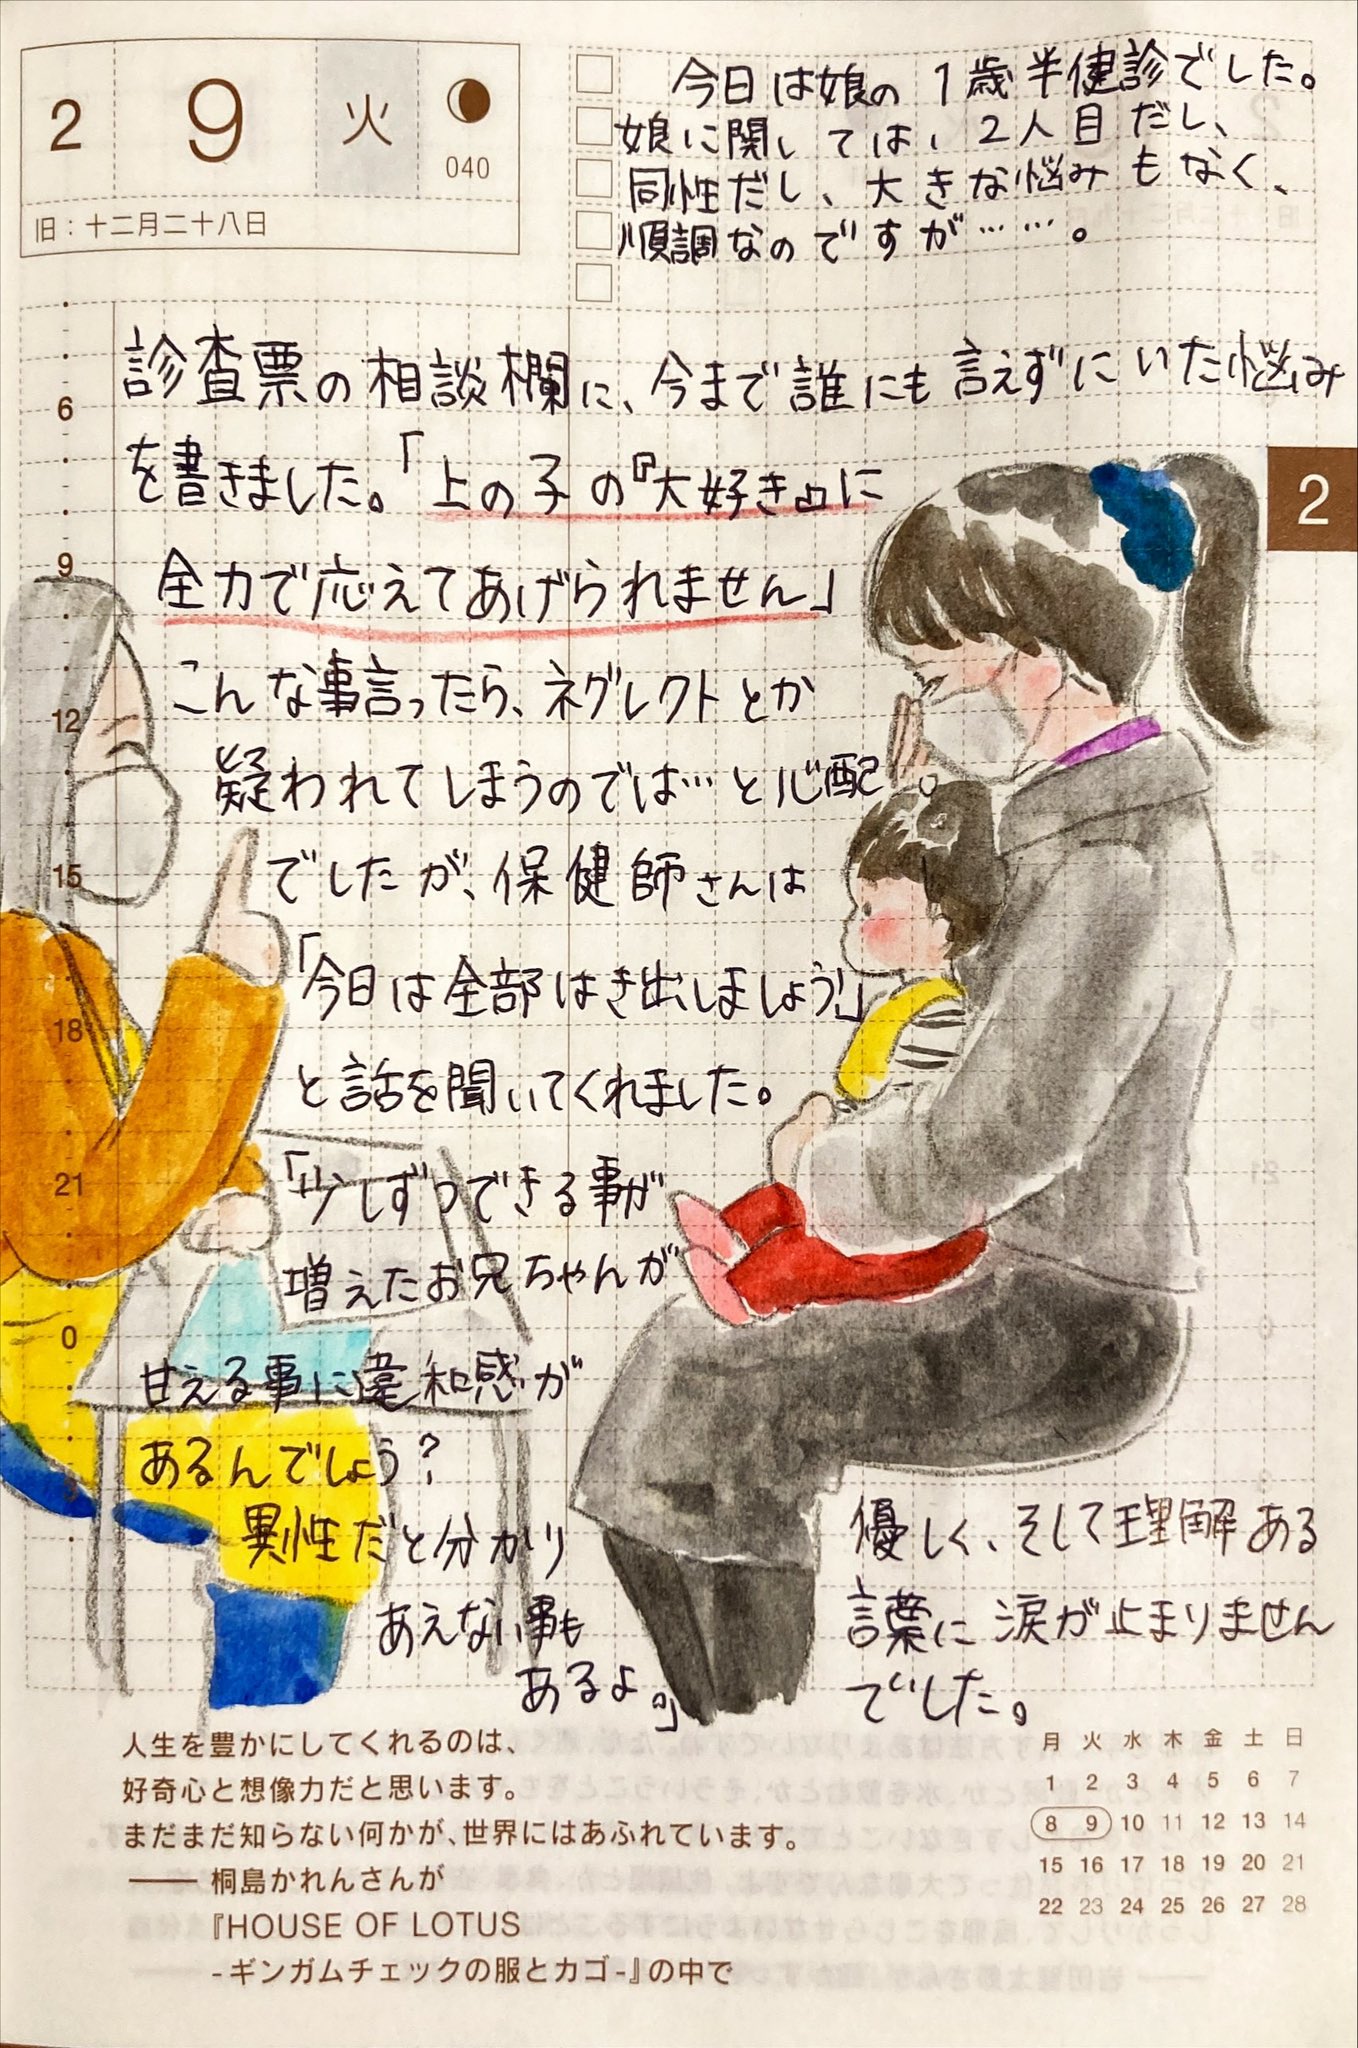 2 9 火 040
旧：十二月二十八日
今日は娘の1歳半健診でした。
娘に関しては、2人目だし、
同性だし、大きな悩みもなく、
順調なのですが……。
診査票の相談欄に、今まで誰にも言えずにいた悩み
を書きました。「上の子の『大好き』に
全力で応えてあげられません」
こんな事言ったら、ネグレクトとか
疑われてしまうのでは…と心配
でしたが、保健師さんは
「今日は全部はき出しましょう!」
と話を聞いてくれました。
「少しずつできる事が
増えたお兄ちゃんが
甘える事に違和感が
あるんでしょう？
異性だと分かり
あえない事も
あるよ。」
優しく、そして理解ある
言葉に涙が止まりません
でした。
2
6
9
12
15
18
21
0
3
人生を豊かにしてくれるのは、
好奇心と想像力だと思います。
まだまだ知らない何かが、世界にはあふれています。
―― 桐島かれんさんが
『HOUSE OF LOTUS
-ギンガムチェックの服とカゴ-』の中で
月 火 水 木 金 土 日
1 2 3 4 5 6 7
8 9 10 11 12 13 14
15 16 17 18 19 20 21
22 23 24 25 26 27 28